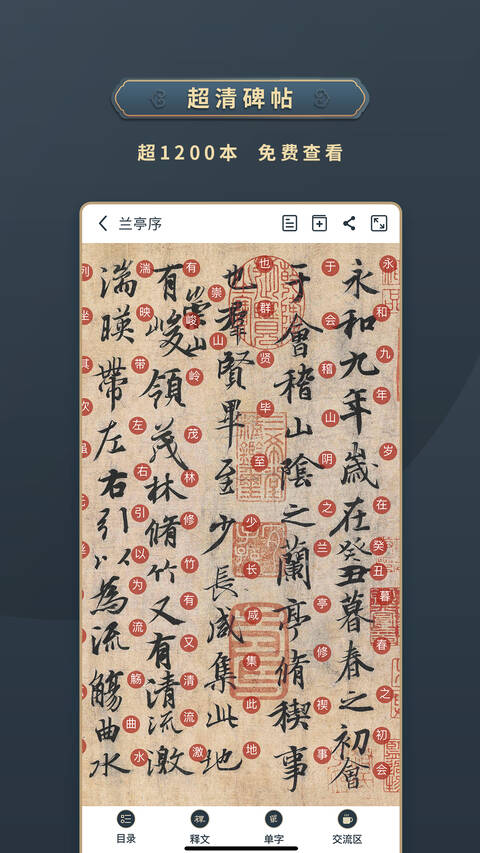 超清碑帖
超1200本 免费查看
兰亭序
永和九年歲在癸丑暮春之初會
永和九年岁在癸丑暮春之初会
于會稽山陰之蘭亭脩禊事
于会稽山阴之兰亭修禊事
也羣賢畢至少長咸集此地
也群贤毕至少长咸集此地
有崇山峻領茂林脩竹又有清流激
有崇山峻岭茂林修竹又有清流激
湍暎帶左右引以為流觴曲水
湍映带左右引以为流觞曲水
列坐其次
目录
释文
单字
交流区